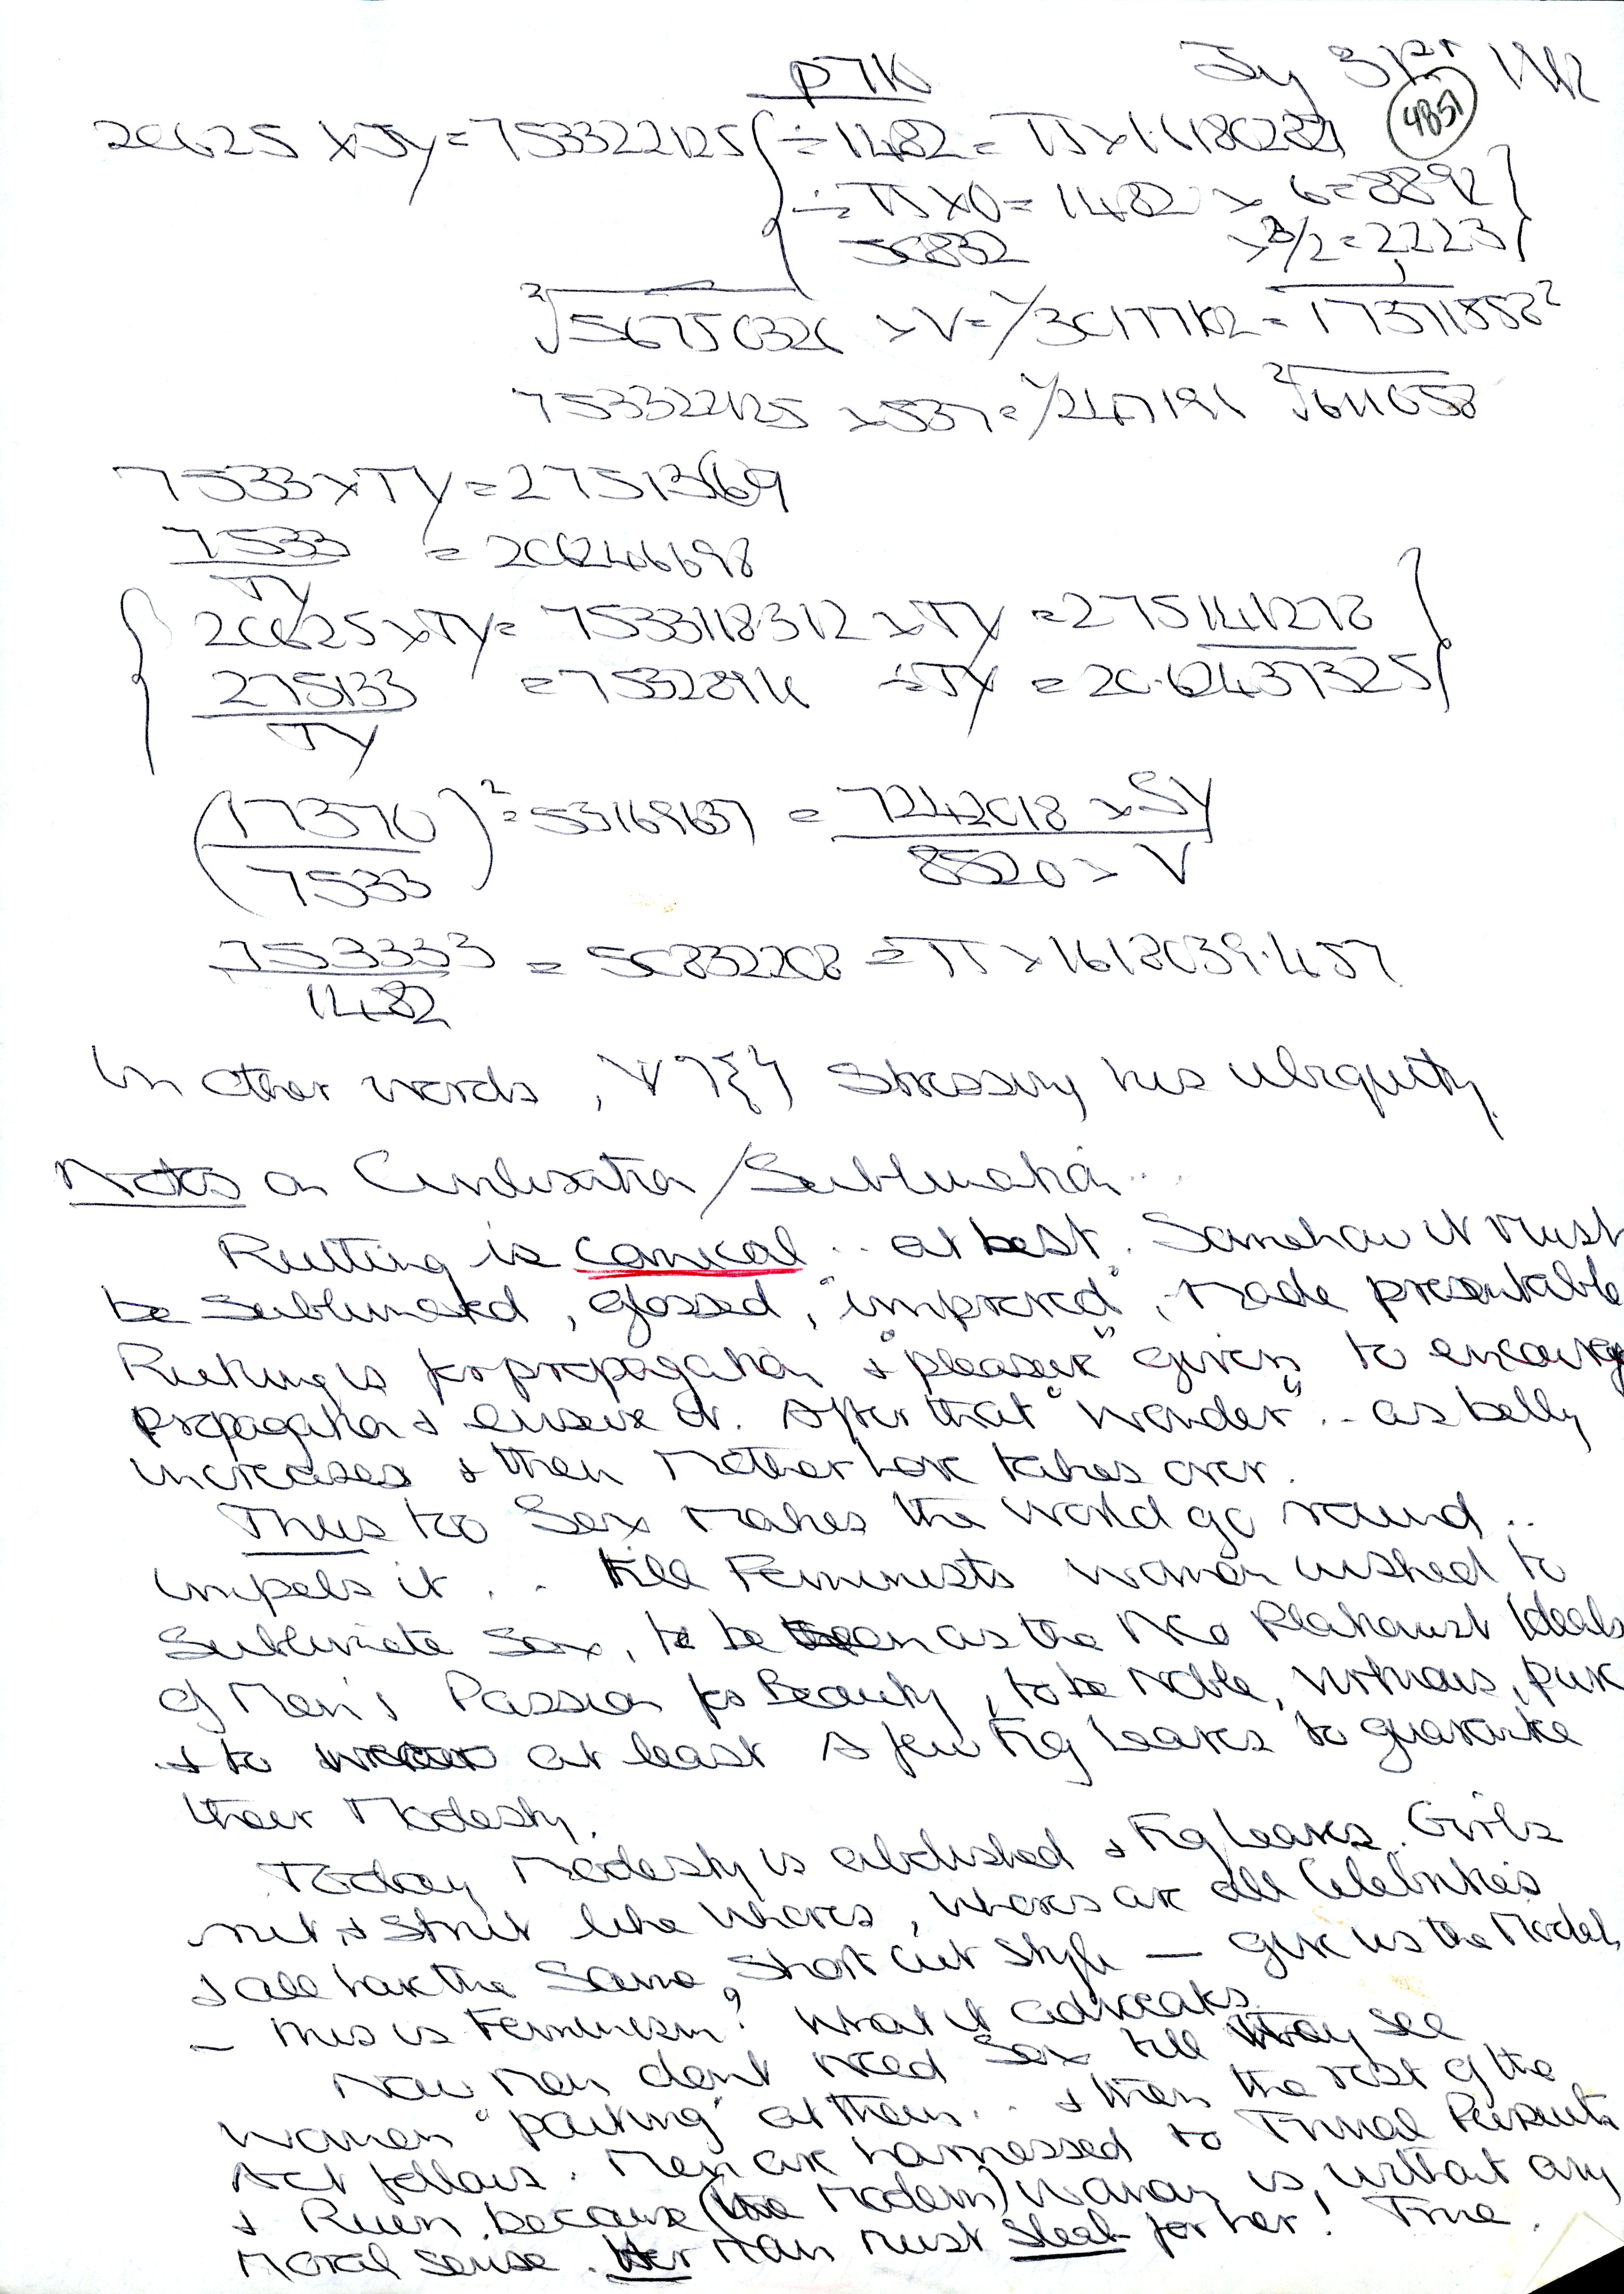 P710 Jy 31st
4851
20625 x Jy = 753322125 { ÷ 1482 = π x
÷ π x 0 = 1482 x 6 = 8892 }
50832 x 3/2 = 2223
x V =
753322125 x 537 =
7533 x TY = 27513669
7533 / TY =
20625 x TY = 7533118.312 x TY = 275141278
275133 / TY = ÷ TY = 20.62437325
(17370 / 7533)² = 53169637 = 7242018 x SY / 8520 x V
753333 / 1482 = 50832208 = π x 1618039.457
In other words, stressing his ubiquity.
Notes on Civilisation/Sublimation...
Rutting is comical .. at best. Somehow it must
be sublimated, glossed, "improved", made presentable
Rutting is for propagation & "pleasure" given to encourage
propagation & ensure it. After that "wonder" .. as belly
increases & then Mother Love takes over.
Thus too Sex makes the World go round ..
impels it .. till Feminists women wished to
sublimate sex, to be seen as the Neo Platonist Ideals
of Men's Passion for Beauty, to be Noble, Virtuous, pure
& to wear at least a few Fig Leaves to guarantee
their Modesty.
Today Modesty is abolished & Fig Leaves. Girls
rut & strut like Whores, Whores are all Celebrities
& all have the Same, Short cut style — give us the Model,
– This is Feminism? What it advocates.
Now Men don't need Sex till they see
women "parking" at them .. & then the rest of the
Act follows. Men are harnessed to Trivial Pursuits
& Ruin, because (the Modern) Woman is, without any
Moral sense. Her Man must steal for her! True.